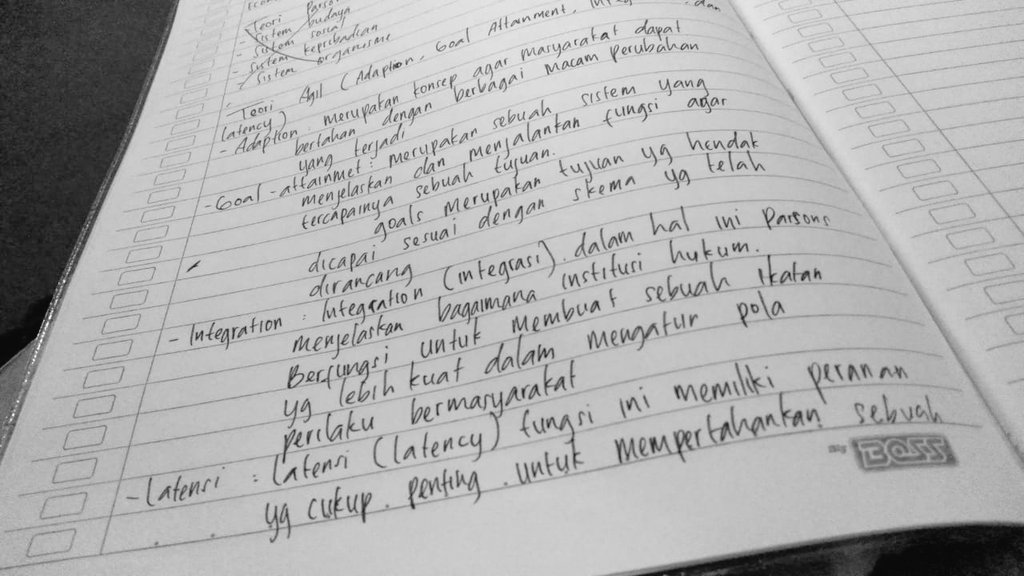 - Teori Parso
- Sistem budaya
- Sistem sosial
- Sistem kepribadian
- Sistem organisme
- Teori Agil (Adaption, Goal Attainment, dan
latency)
- Adaption : merupakan konsep agar masyarakat dapat
bertahan dengan berbagai macam perubahan
yang terjadi.
- Goal-attainmet : merupakan sebuah sistem yang
menjelaskan dan menjalankan fungsi agar
tercapainya sebuah tujuan.
goals merupakan tujuan yg hendak
dicapai sesuai dengan skema yg telah
dirancang
- Integration : Integration (integrasi). dalam hal ini Parsons
menjelaskan bagaimana institusi hukum.
Berfungsi untuk membuat sebuah Ikatan
yg lebih kuat dalam mengatur pola
perilaku bermasyarakat
- Latensi : latensi (latency) fungsi ini memiliki peranan
yg cukup. penting. untuk mempertahankan sebuah
by BOSS